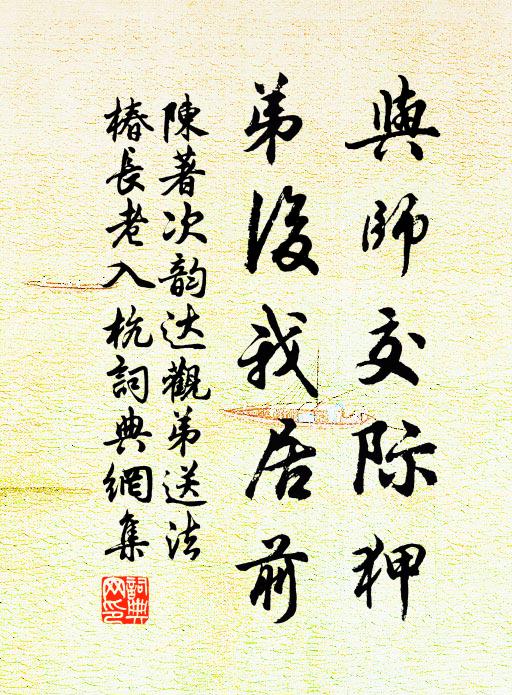 與師交际狎
弟後我居前
陳著次韵达觀弟送法
椿長老入杭詞典網集
詞典网印